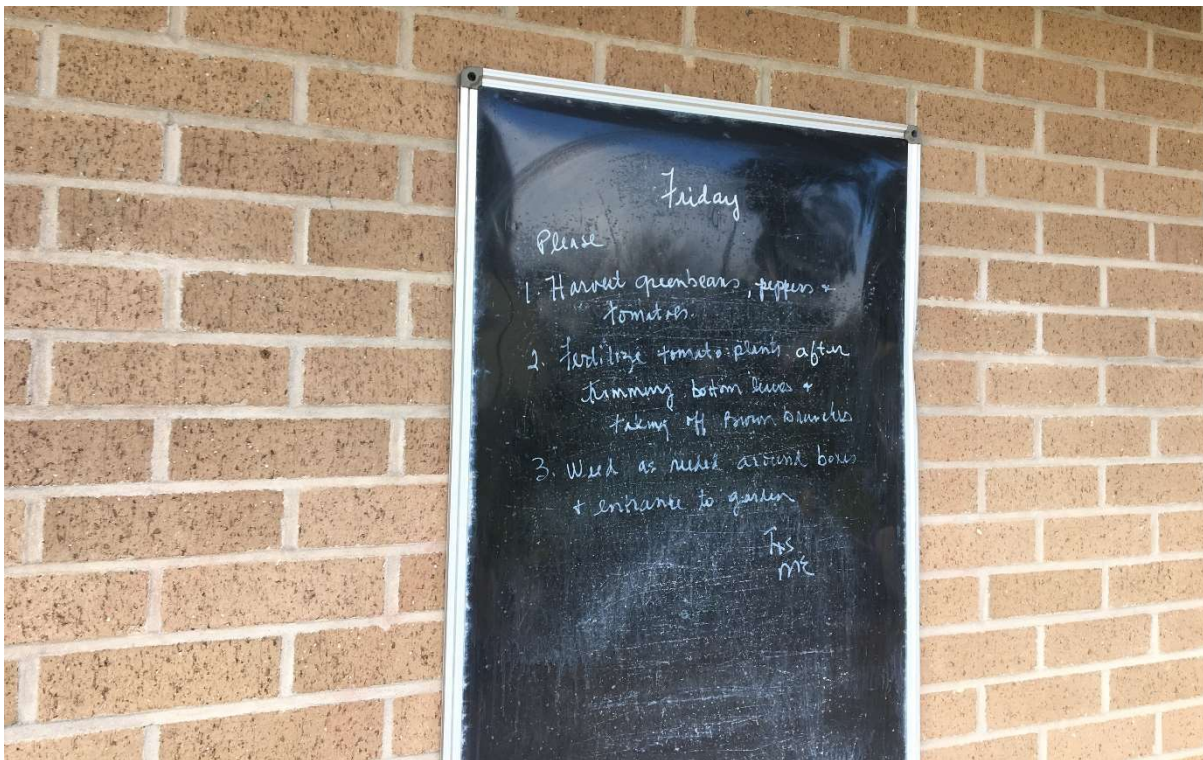 Friday
Please
1. Harvest greenbeans, peppers +
tomatoes.
2. Fertilize tomato plants after
trimming bottom leaves +
taking off Brown branches
3. Weed as needed around boxes
+ entrance to garden
ME